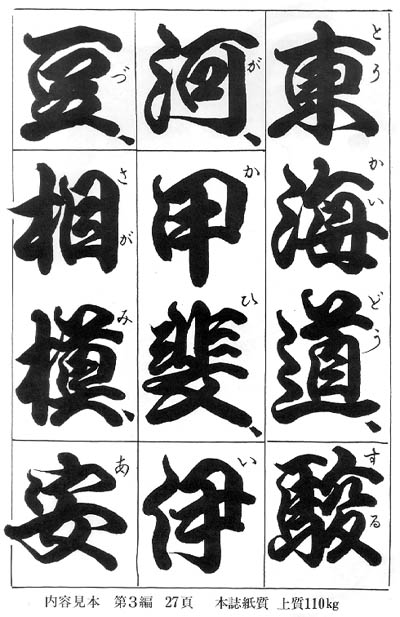 東海道、駿
とうかいどうする
河、甲斐、伊
がかひい
豆、相模、安
づさがみあ
内容見本 第3編 27頁 本誌紙質 上質110kg